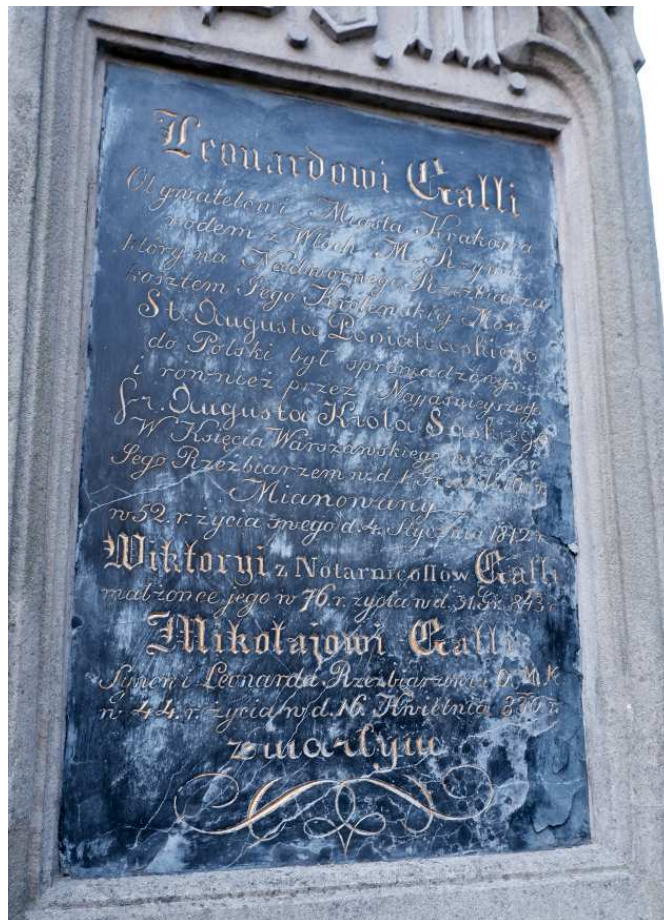 D. O. M.
Leonardowi Galli
Obywatelowi Miasta Krakowa
rodem z Włoch M. Rzymu
który na Nadwornego Rzeźbiarza
kosztem Jego Królewskiéy Mości
St. Augusta Poniatowskiego
do Polski był sprowadzony
i rownież przez Nayjaśnieyszego
fr. Augusta Króla Saskiego
W. Księcia Warszawskiego
Jego Rzeźbiarzem w d. 1
Mianowany
w 52. r. życia swego d. 4. Stycznia 1812 r.
Wiktoryi z Notarnicollów Galli
małżonce jego w 76 r. życia w d. 31. Gr. 843 r.
Mikołajowi Galli
Synowi Leonarda Rzeźbiarzowi O. M. K
w 44. r. życia w d. 16. Kwietnia 1830 r.
zmarłym